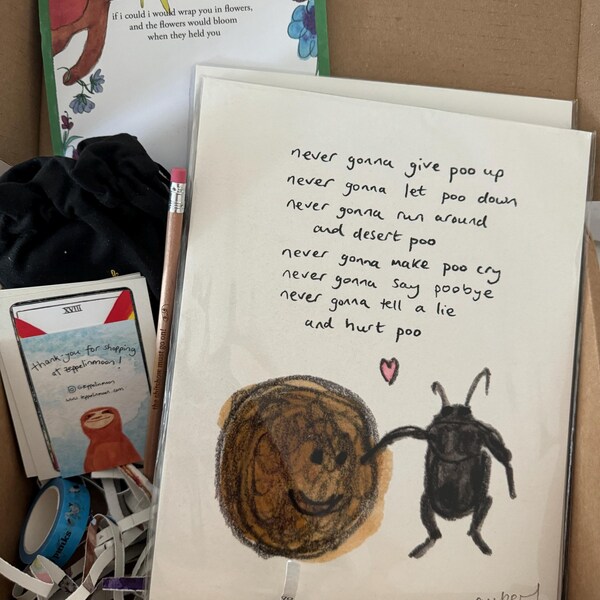 if i could i would wrap you in flowers,
and the flowers would bloom
when they held you
never gonna give poo up
never gonna let poo down
never gonna run around
and desert poo
never gonna make poo cry
never gonna say poobye
never gonna tell a lie
and hurt poo
XVIII
thank you for shopping
at zeppelinmoon!
@zeppelinmoon
www.zeppelinmoon.com